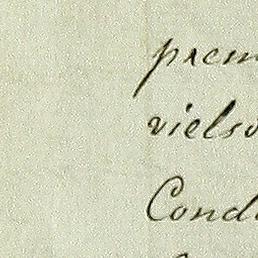 prem
vielso
Cond